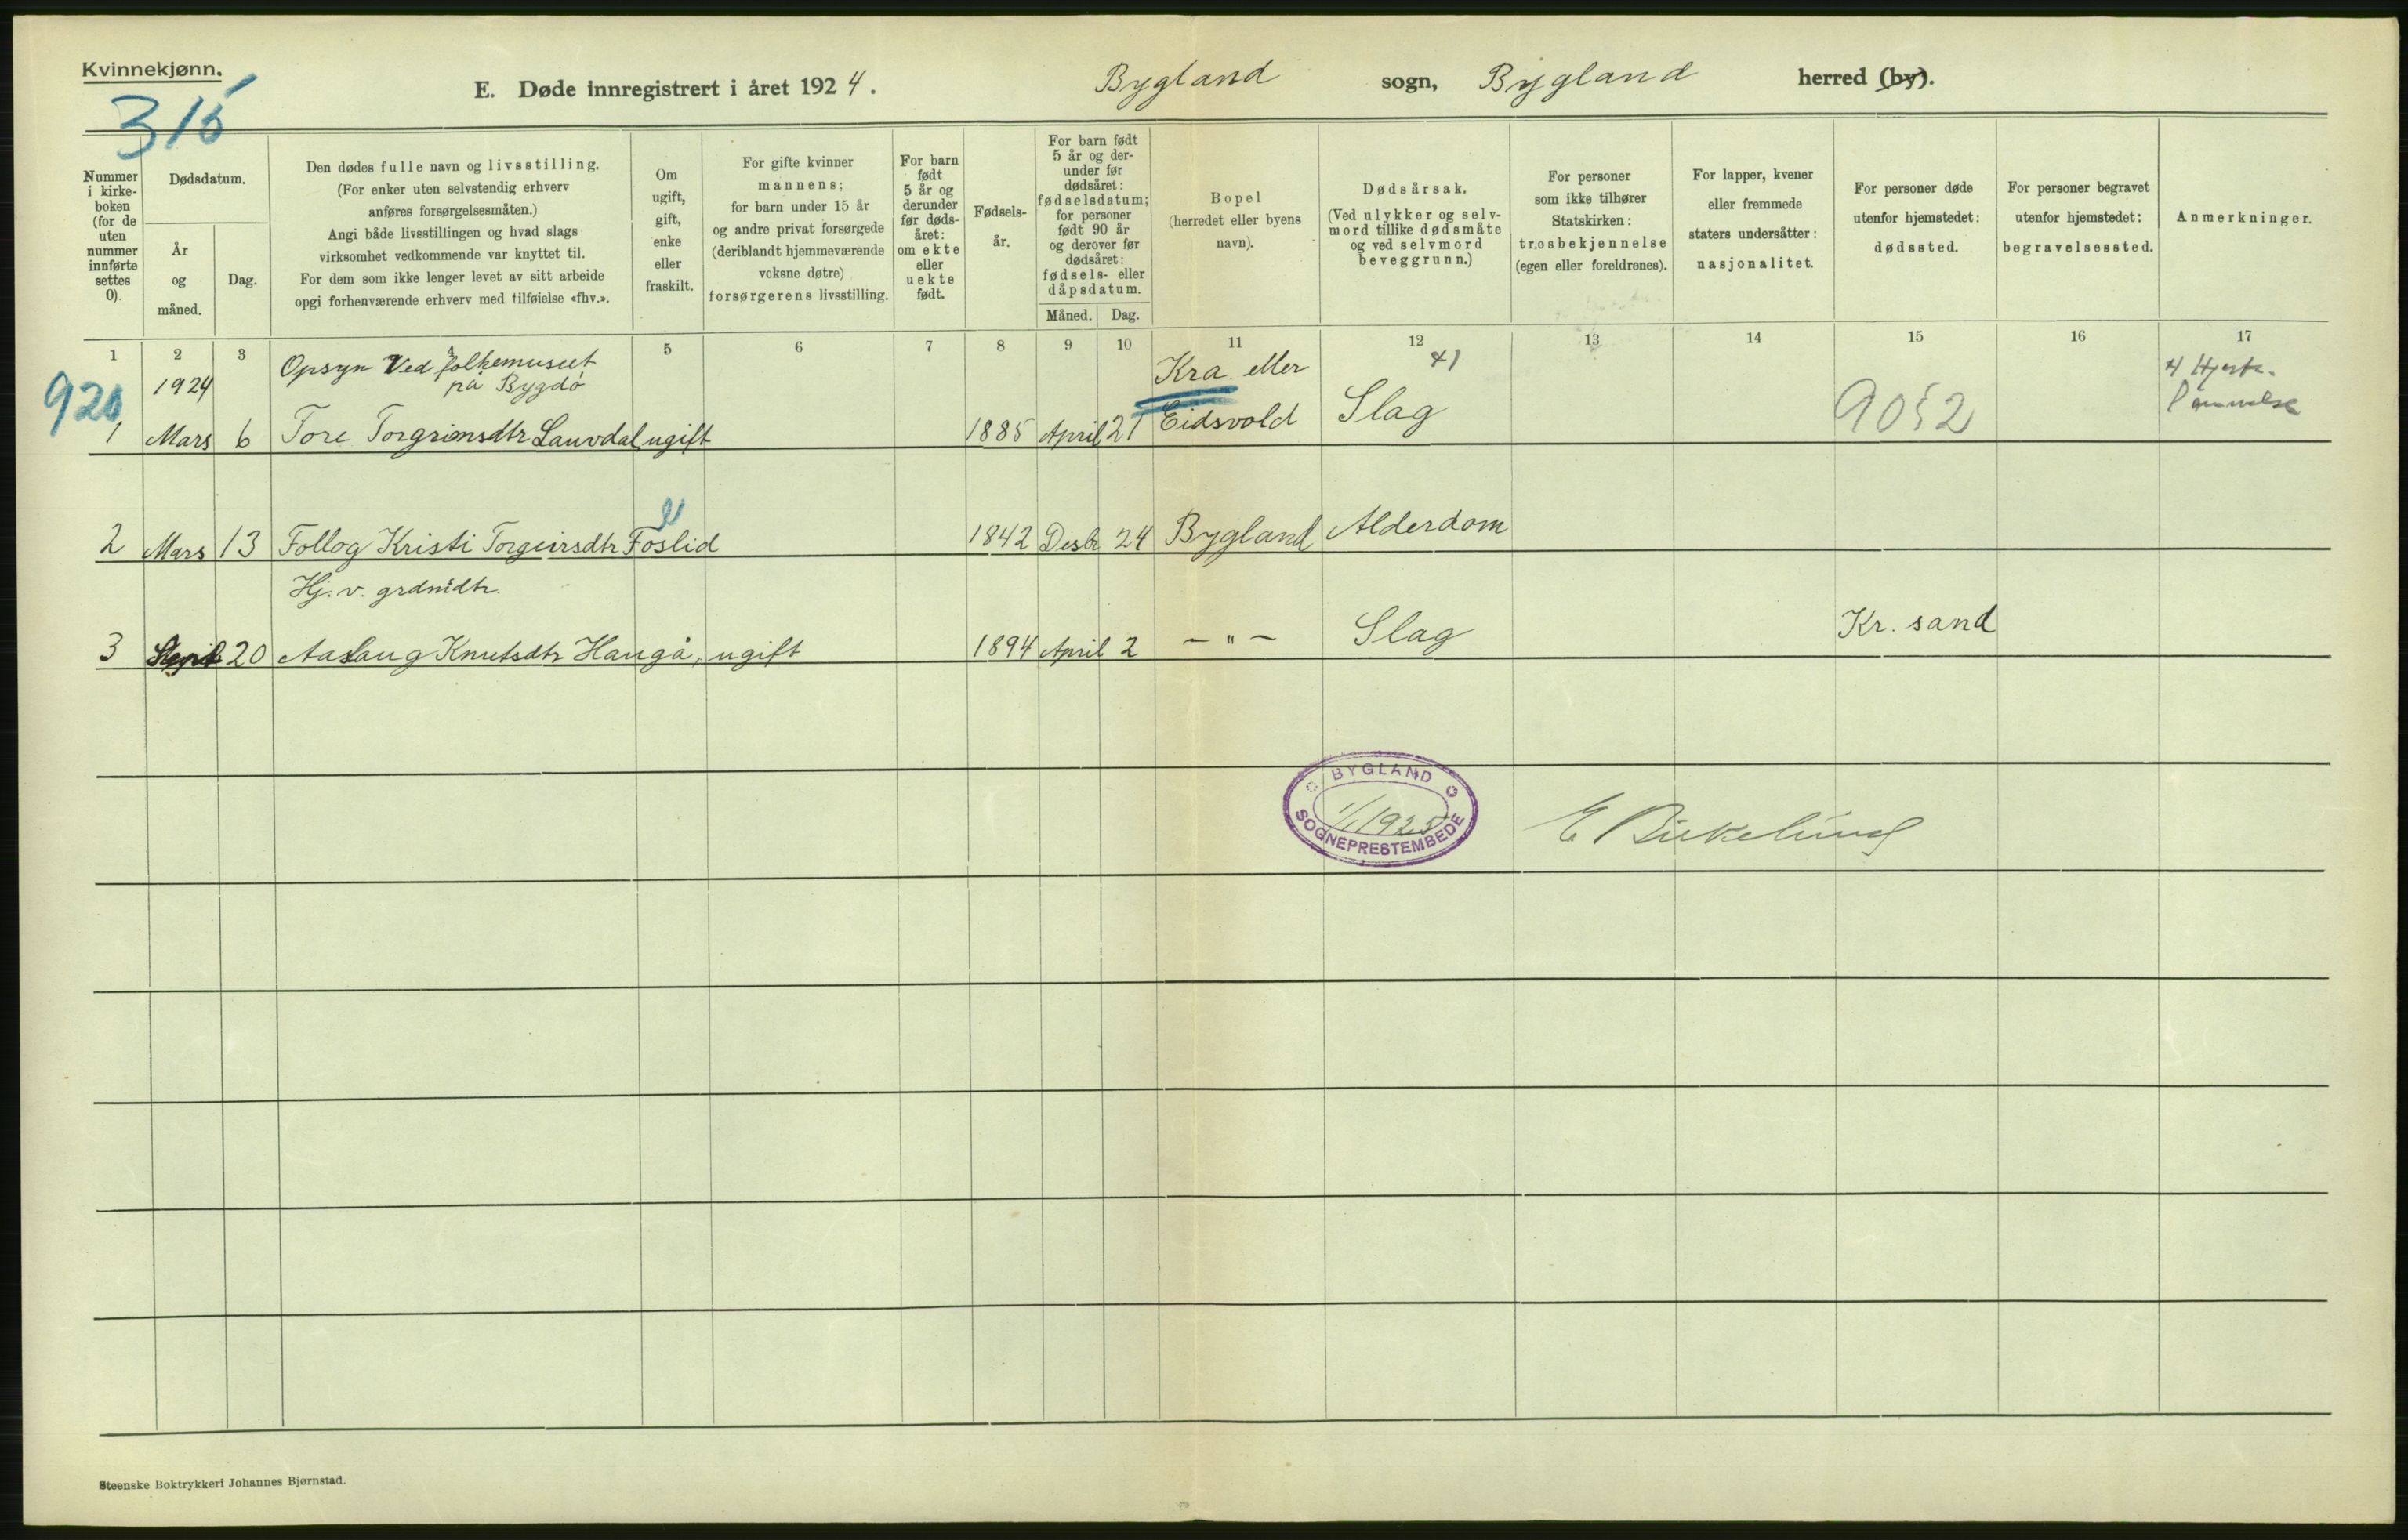 Kvinnekjønn.
315
E. Døde innregistrert i året 1924. Bygland sogn, Bygland herred (by).
Nummer
i kirke-
boken
(for de
uten
nummer
innførte
settes
0).
Dødsdatum.
År
og
måned.
Dag.
Den dødes fulle navn og livsstilling.
(For enker uten selvstendig erhverv
anføres forsørgelsesmåten.)
Angi både livsstillingen og hvad slags
virksomhet vedkommende var knyttet til.
For dem som ikke lenger levet av sitt arbeide
opgi forhenværende erhverv med tilføielse «fhv.».
Om
ugift,
gift,
enke
eller
fraskilt.
For gifte kvinner
mannens;
for barn under 15 år
og andre privat forsørgede
(deriblandt hjemmeværende
voksne døtre)
forsørgerens livsstilling.
For barn
født
5 år og
derunder
før døds-
året:
om ekte
eller
uekte
født.
Fødsels-
år.
For barn født
5 år og der-
under før
dødsåret:
fødselsdatum;
for personer
født 90 år
og derover før
dødsåret:
fødsels- eller
dåpsdatum.
Måned. Dag.
Bopel
(herredet eller byens
navn).
Dødsårsak.
(Ved ulykker og selv-
mord tillike dødsmåte
og ved selvmord
beveggrunn.)
For personer
som ikke tilhører
Statskirken:
trosbekjennelse
(egen eller foreldrenes).
For lapper, kvener
eller fremmede
staters undersåtter:
nasjonalitet.
For personer døde
utenfor hjemstedet:
dødssted.
For personer begravet
utenfor hjemstedet:
begravelsessted.
Anmerkninger.
1 2 3 5 6 7 8 9 10 11 12 13 14 15 16 17
920 1924 Opsyn Ved folkemuseet Kra. eller
på Bygdö
1 Mars 6 Tore Torgrimsdtr Lauvdal ugift 1885 April 21 Eidsvold Slag 9052
2 Mars 13 Follog Kristi Torgeirsdtr Foslid 1842 Desbr 24 Bygland Alderdom
Hj. v. grdmdtr.
3 April 20 Aaslaug Knutsdtr Haugå, ugift 1894 April 2 – " – Slag Kr. sand
BYGLAND
1/1 1925
SOGNEPRESTEMBEDE
E Birkelund
Steenske Boktrykkeri Johannes Bjørnstad.